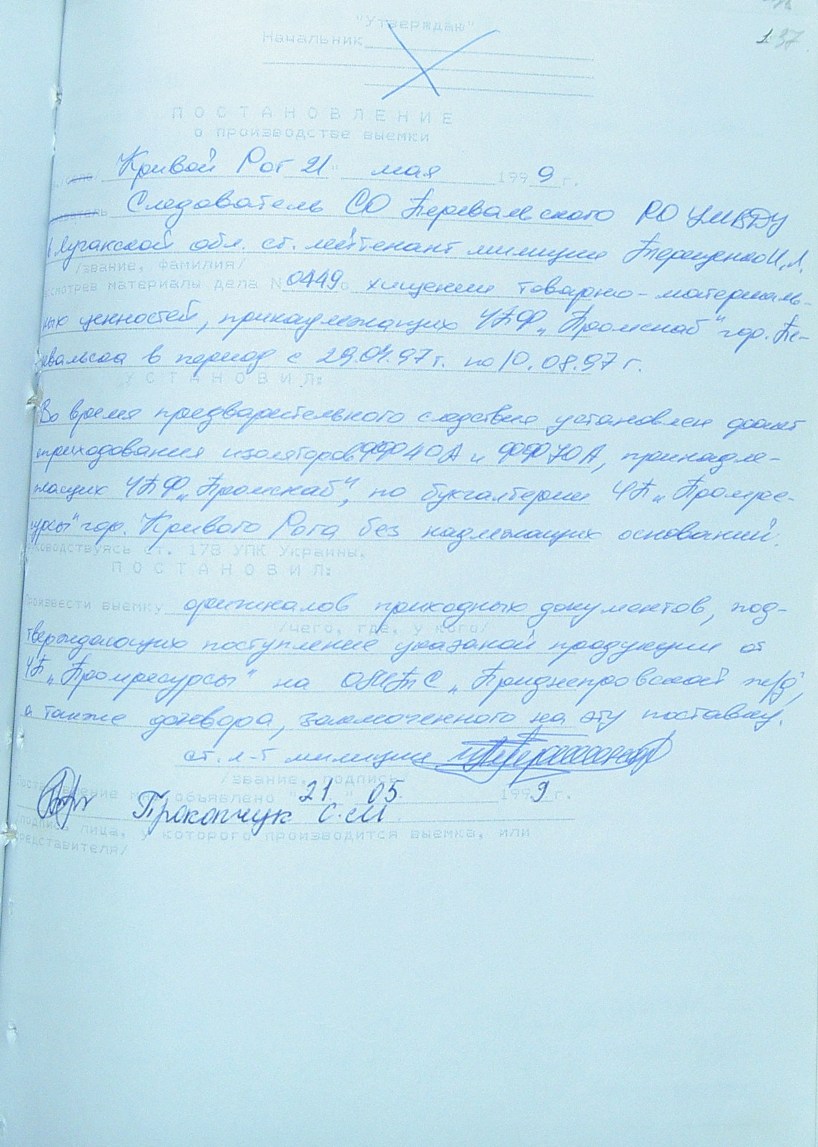 137
"Утверждаю"
Начальник
ПОСТАНОВЛЕНИЕ
о производстве выемки
Кривой Рог 21 " мая 1999 г.
Следователь СО Перевальского РО УМВДУ
Луганской обл. ст. лейтенант милиции Терещенко И.Л.
/звание, фамилия/
рассмотрев материалы дела № 0449 о хищении товарно-материаль-
ных ценностей, принадлежащих ЧПФ "Промснаб" гор. Пе-
ревальска в период с 29.04.97 г. по 10.08.97 г.
УСТАНОВИЛ:
Во время предварительного следствия установлен факт
приходования изоляторов ФФ40А и ФФ70А, принадле-
жащих ЧПФ "Промснаб", по бухгалтерии ЧП "Промре-
сурсы" гор. Кривого Рога без надлежащих оснований.
руководствуясь ст. 178 УПК Украины.
ПОСТАНОВИЛ:
произвести выемку оригиналов приходных документов, под-
/чего, где, у кого/
тверждающих поступление указаной продукции от
ЧП "Промресурсы" на ОМТС "Приднепровской ж/д",
а также договора, заключенного на эту поставку.
ст. л-т милиции
/звание, подпись/
Постановление мне объявлено "21" 05. 1999 г.
Прокопчук С.М
/подпись лица, у которого производится выемка, или
представителя/